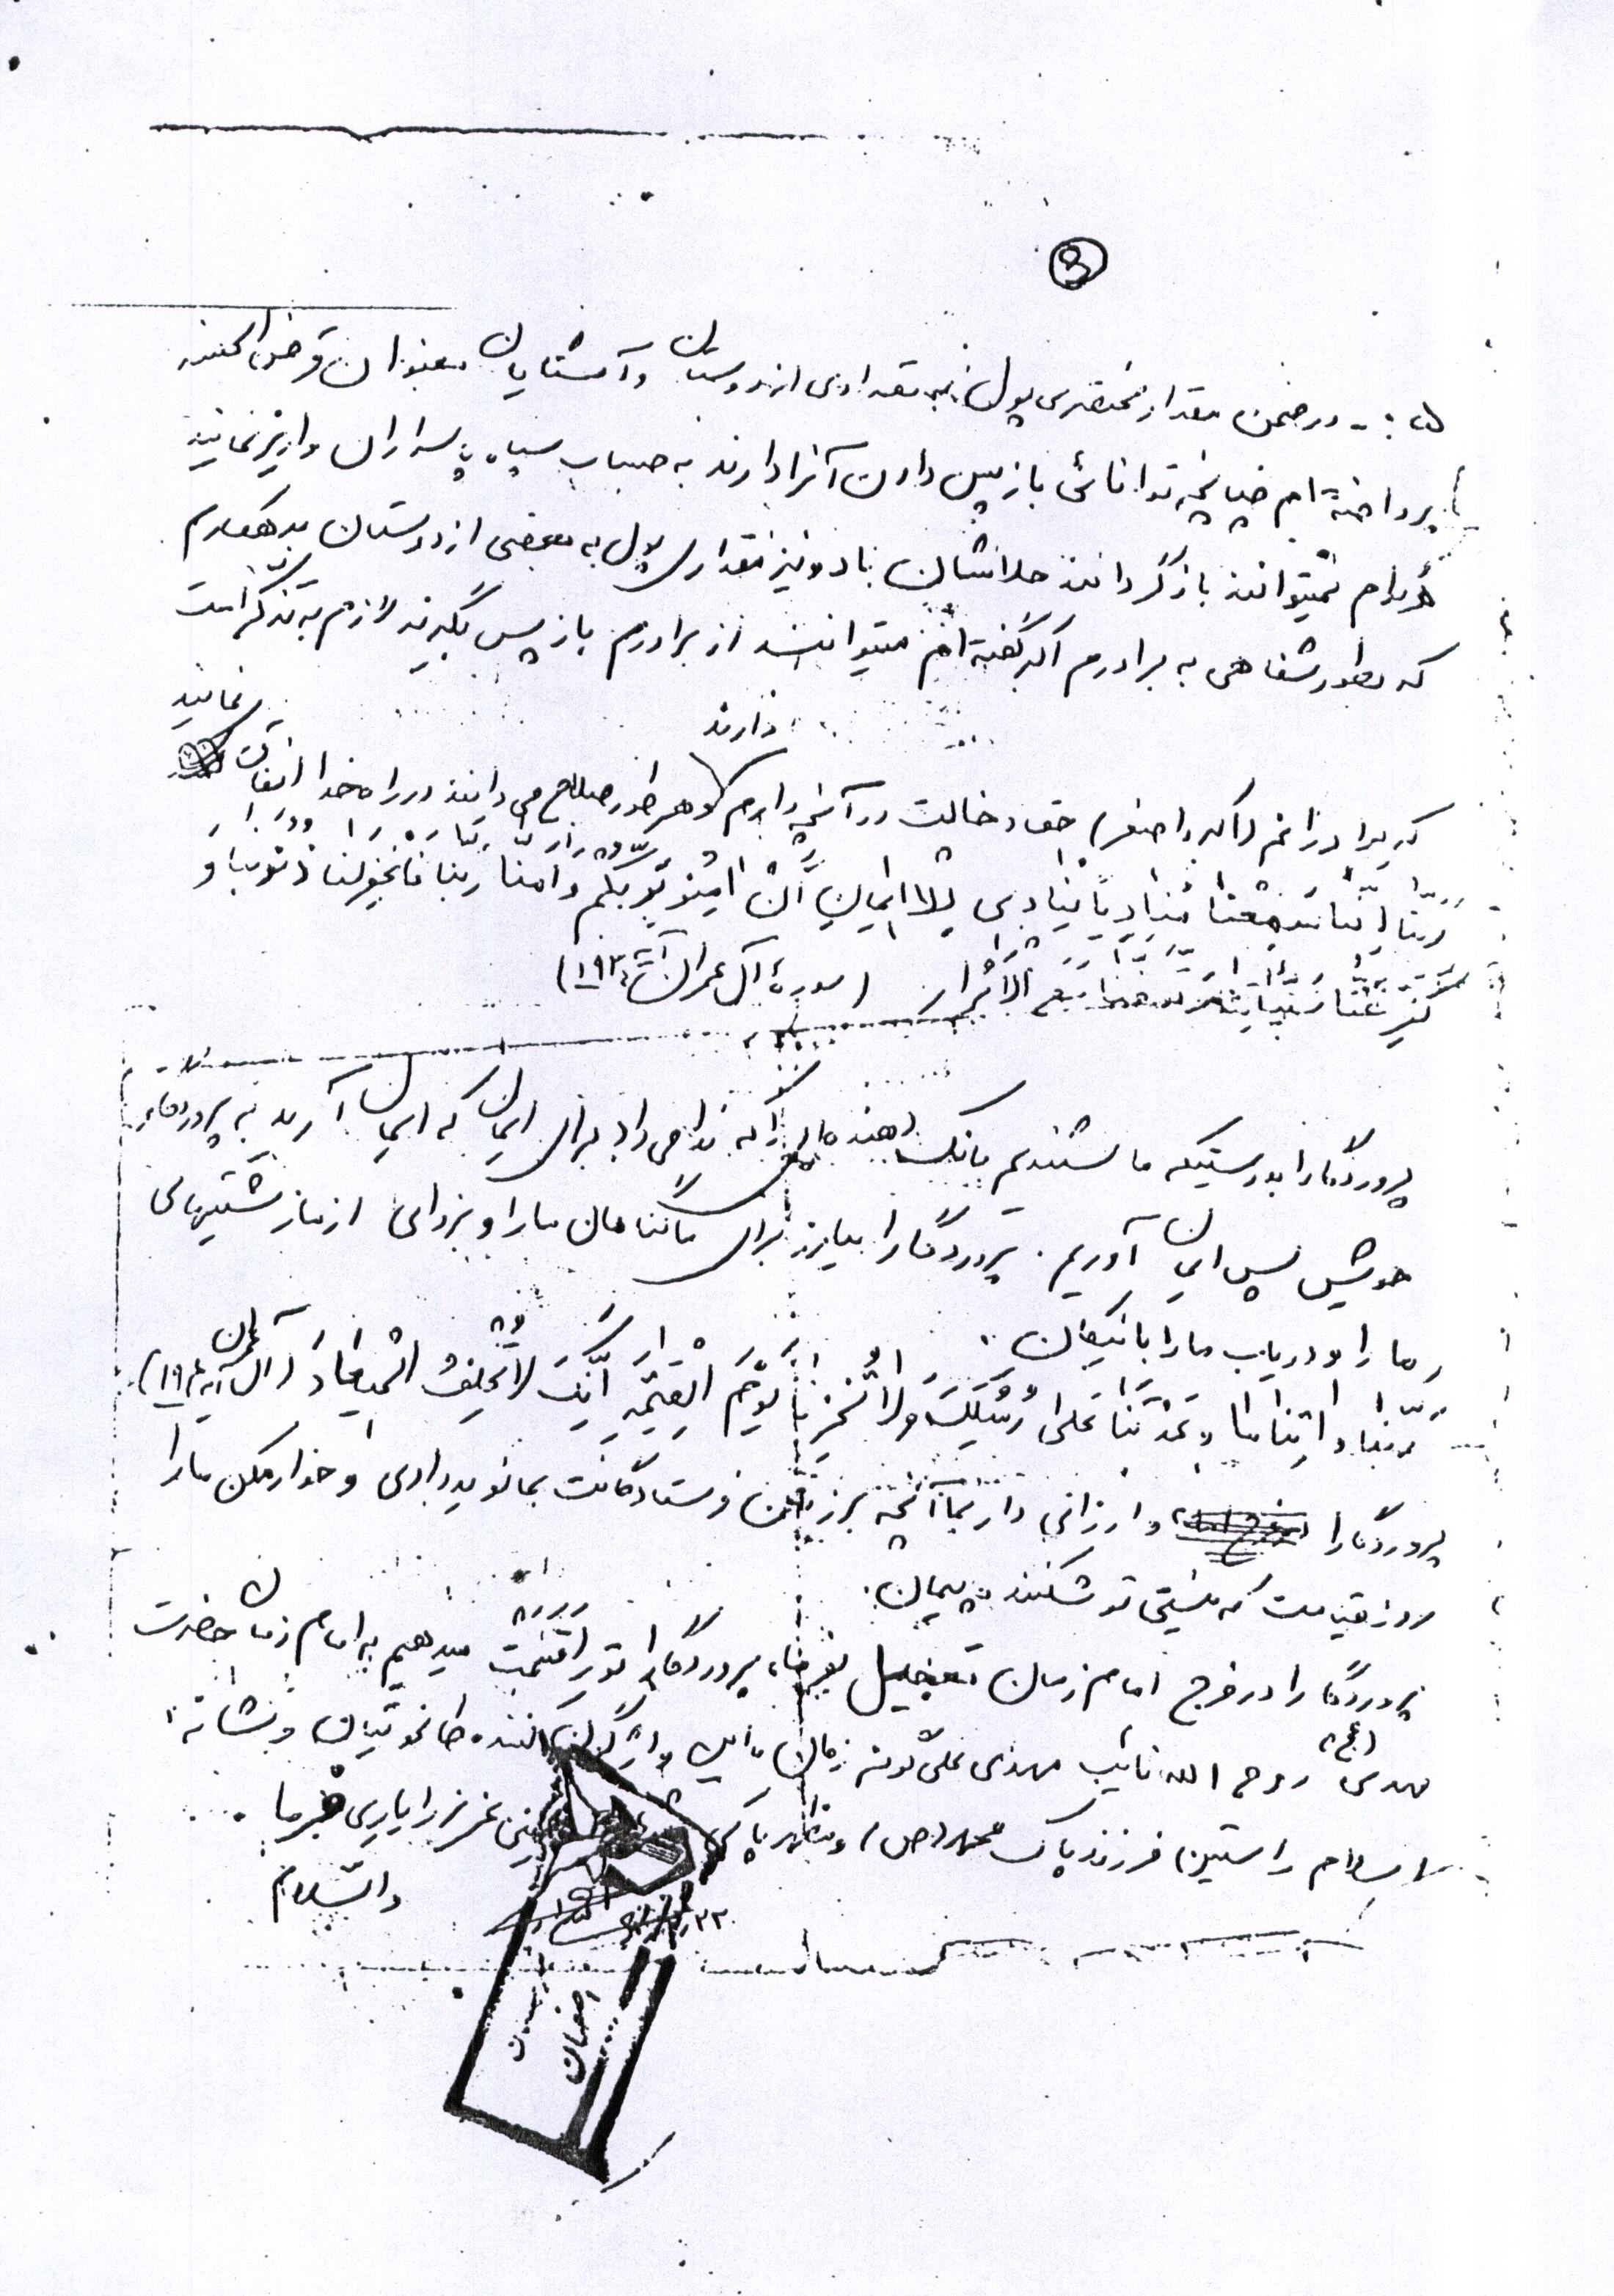 ۵
۵ :- در ضمن مقدار مختصری پول به تعدادی از دوستان و آشنایان بعنوان قرض الحسنه
پرداخته ام چنانچه توانائی بازپس دادن آنرا دارند به حساب سپاه پاسداران واریز نمایند
هرکدام نمیتوانند بازگردانند حلالشان باد و نیز مقداری پول به بعضی از دوستان بدهکارم
که بطور شفاهی به برادرم اکبر گفته ام میتوانند از برادرم باز پس بگیرند لازم به تذکر است
که برادرانم (اکبر و اصغر) حق دخالت در آنچه دارم دارند هر طور صلاح می دانند در راه خدا انفاق نمایند
رَبَّنا اِنَّنا سَمِعْنا مُنادِیاً یُنادی لِلاایمانِ اَنْ امِنوُ بِرَبِّکُم وَ امَنّا رَبَّنا فَاغْفِرلَنا ذُنُوبَنا وَ
کَفِّرْ عَنّا سَیِّئاتِنا وَ تَوَفَّنا مَعَ الْاَبْرار (سورهٔ آل عمران آیه ۱۹۳)
پروردگارا بدرستیکه ما شنیدیم بانگ دهنده ای را که ندا می داد برای ایمان که ایمان آرید به پروردگار
خویش پس ایمان آوردیم. پروردگارا بیامرز برای ما گناهان ما را و بزدای از ما زشتیهای
ما را و دریاب ما را با نیکان.
رَبَّنا وَ اتِنا ما وَعَدْتَنا عَلی رُسُلِکَ وَ لا تُخْزِنا یَوْمَ الْقِیمَهِ اِنَّکَ لا تُخْلِفُ الْمیعادَ (آل عمران آیه ۱۹۴)
پروردگارا و ارزانی دار بما آنچه بر زبان فرستادگانت بما نوید دادی و خوار مکن ما را
روز قیامت که نیستی تو شکننده پیمان.
پروردگارا در فرج امام زمان تعجیل بفرما، پروردگارا تو را قسمت میدهیم به امام زمان حضرت
مهدی (عج) روح الله نائب مهدی علی گونه زمان این واژگون کننده طاغوتیان و نشانه
اسلام راستین فرزند پاک محمد (ص) و مظهر پاکی خمینی عزیز را یاری فرما.
والسلام
اصفهان